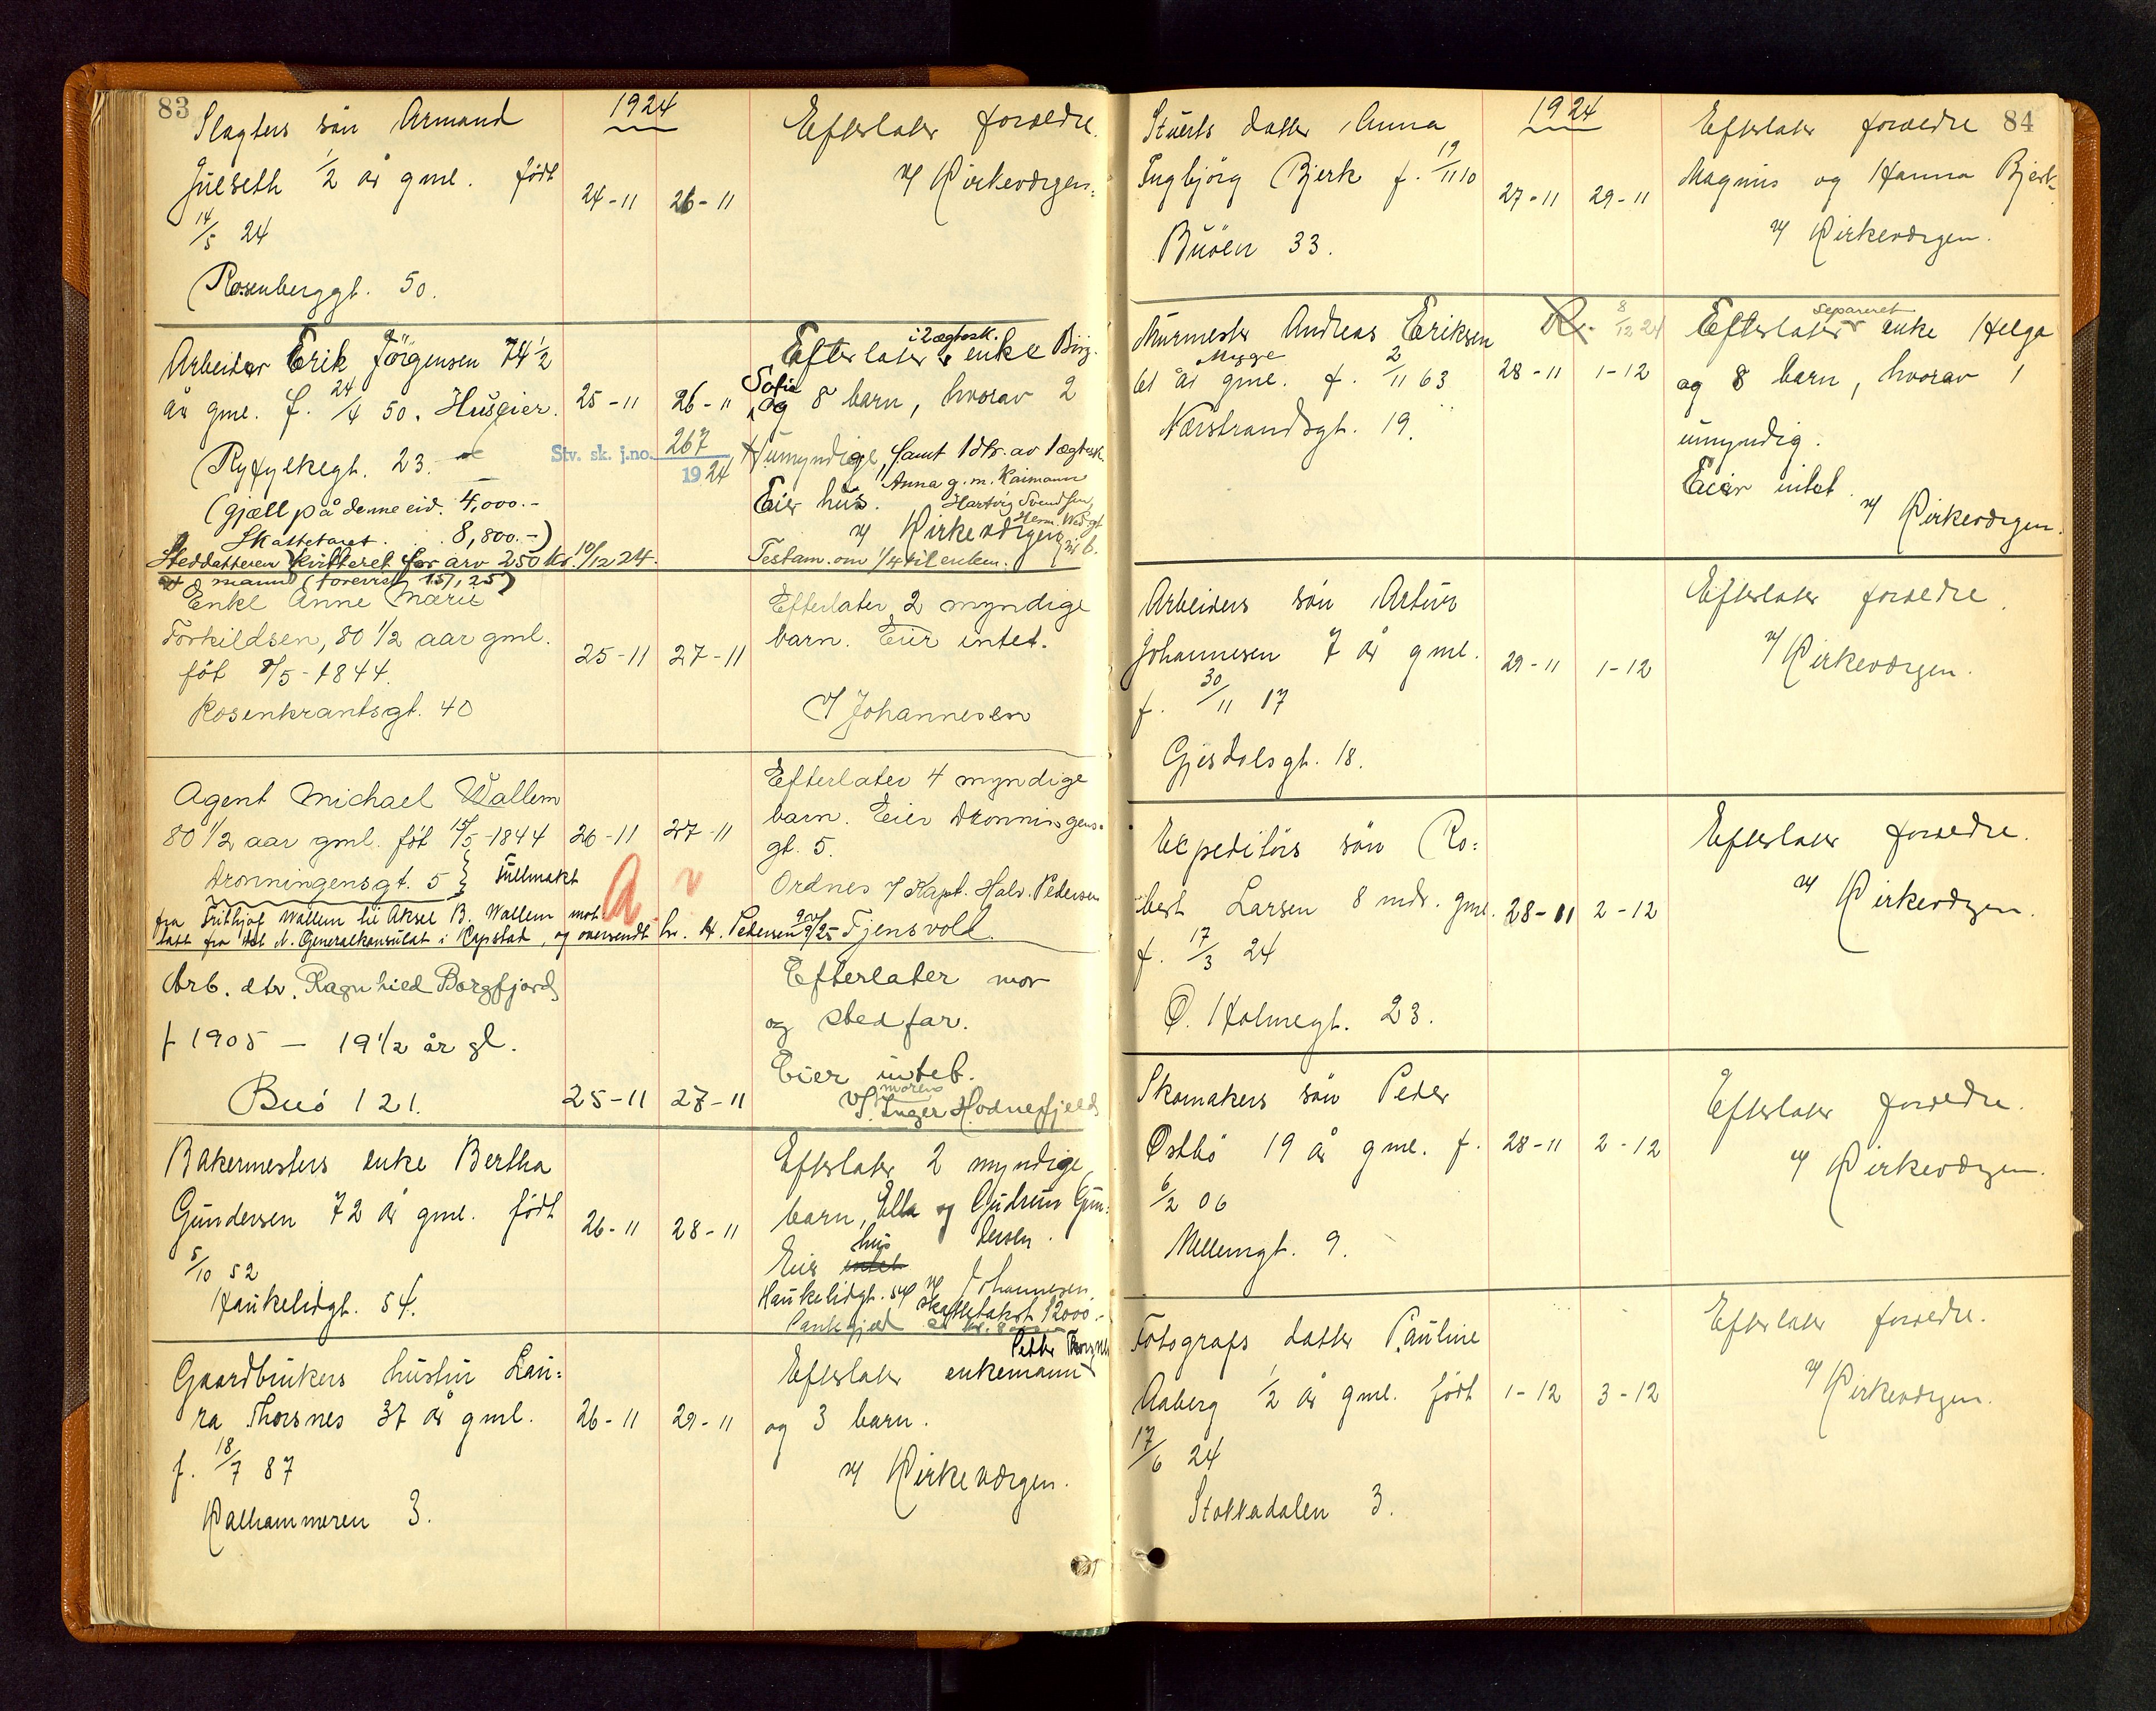 83
1924
Slagters sön Armand
Julseth 1/2 år gml. født
14/5 24
Rosenberggt. 50.
24-11 26-11
Efterlater foreldre.
v/ Kirkevergen.
Arbeider Erik Jörgensen 74 1/2
år gml. f. 24/4 50. Huseier.
Ryfylkegt. 23.
(gjæll på denne eid. 4,000.-
Skattetaxt. . . 8,800.-)
Steddatteren kvitteret for arv 250 kr. 10/12 24.
mann (forevist 15/1 25)
25-11 26-11
Stv. sk. j.no. 267
1924
i 2 ægtesk.
Efterlater enke Birg.
Sofie
og 8 barn, hvorav 2
umyndige, samt 1 dtr. av 1 ægtesk.
Anna g. m. Kaimann
Eier hus. Hartvig Svendsen,
v/ Kirkevergen
Testam. om 1/4 til enken.
Enke Anne Marie
Torkildsen, 80 1/2 aar gml.
föt 8/5-1844.
Rosenkrantsgt. 40
25-11 27-11
Efterlater 2 myndige
barn. Eier intet.
V Johannesen
Agent Michael Wallem
80 1/2 aar gml. föt 15/5-1844
Dronningensgt. 5 } Fullmakt
fra Frithjof Wallem til Aksel B. Wallem mot-
tatt fra det N. Generalkonsulat i Kapstad, og oversendt hr. H. Pedersen 9/25
26-11 27-11
Efterlater 4 myndige
barn. Eier Dronningens-
gt. 5.
Ordnes v/ Kapt. Halv. Pedersen
Tjensvoll.
Arb. dtr. Ragnhild Borgfjord
f 1905 — 19 1/2 år gl.
Buö 121.
25-11 27-11
Efterlater mor
og stedfar.
Eier intet.
moren
v/ Inger Hodnefjeld
Bakermesters enke Bertha
Gundersen 72 år gml. født
5/10 52
Haukelidgt. 54.
26-11 28-11
Efterlater 2 myndige
barn, Ella og Gudrun Gun-
dersen.
hus
Eier intet
v/ Johannesen.
Haukelidgt. 54 skattetakst 12000.-
Pantegjæl
Gaardbrukers hustru Lau-
ra Thorsnes 37 år gml.
f. 18/7 87
Kalhammeren 3.
26-11 29-11
Efterlater enkemann
og 3 barn.
v/ Kirkevergen.
84
1924
Stuerts datter Anna
Ingbjörg Bjerk f. 19/11 10
Buöen 33.
27-11 29-11
Efterlater foreldre
Magnus og Hanna Bjerk.
v/ Kirkevergen.
Murmester Andreas Eriksen
Mygge
61 år gml. f. 2/11 63
Nærstrandsgt. 19.
8/12 24
28-11 1-12
separeret
Efterlater enke Helga
og 8 barn, hvorav 1
umyndig.
Eier intet.
v/ Kirkevergen.
Arbeiders sön Artur
Johannesen 7 år gml.
f. 30/11 17
Gjesdalsgt. 18.
29-11 1-12
Efterlater foreldre.
v/ Kirkevergen.
Expeditörs sön Ro-
bert Larsen 8 mdr. gml.
f. 17/3 24
Ö. Holmegt. 23.
28-11 2-12
Efterlater foreldre.
v/ Kirkevergen.
Skomakers sön Peder
Östbö 19 år gml. f.
6/2 06
Mellemgt. 9.
28-11 2-12
Efterlater foreldre.
v/ Kirkevergen.
Fotografs datter Pauline
Aaberg 1/2 år gml. født
17/6 24
Stokkadalen 3.
1-12 3-12
Efterlater foreldre.
v/ Kirkevergen.